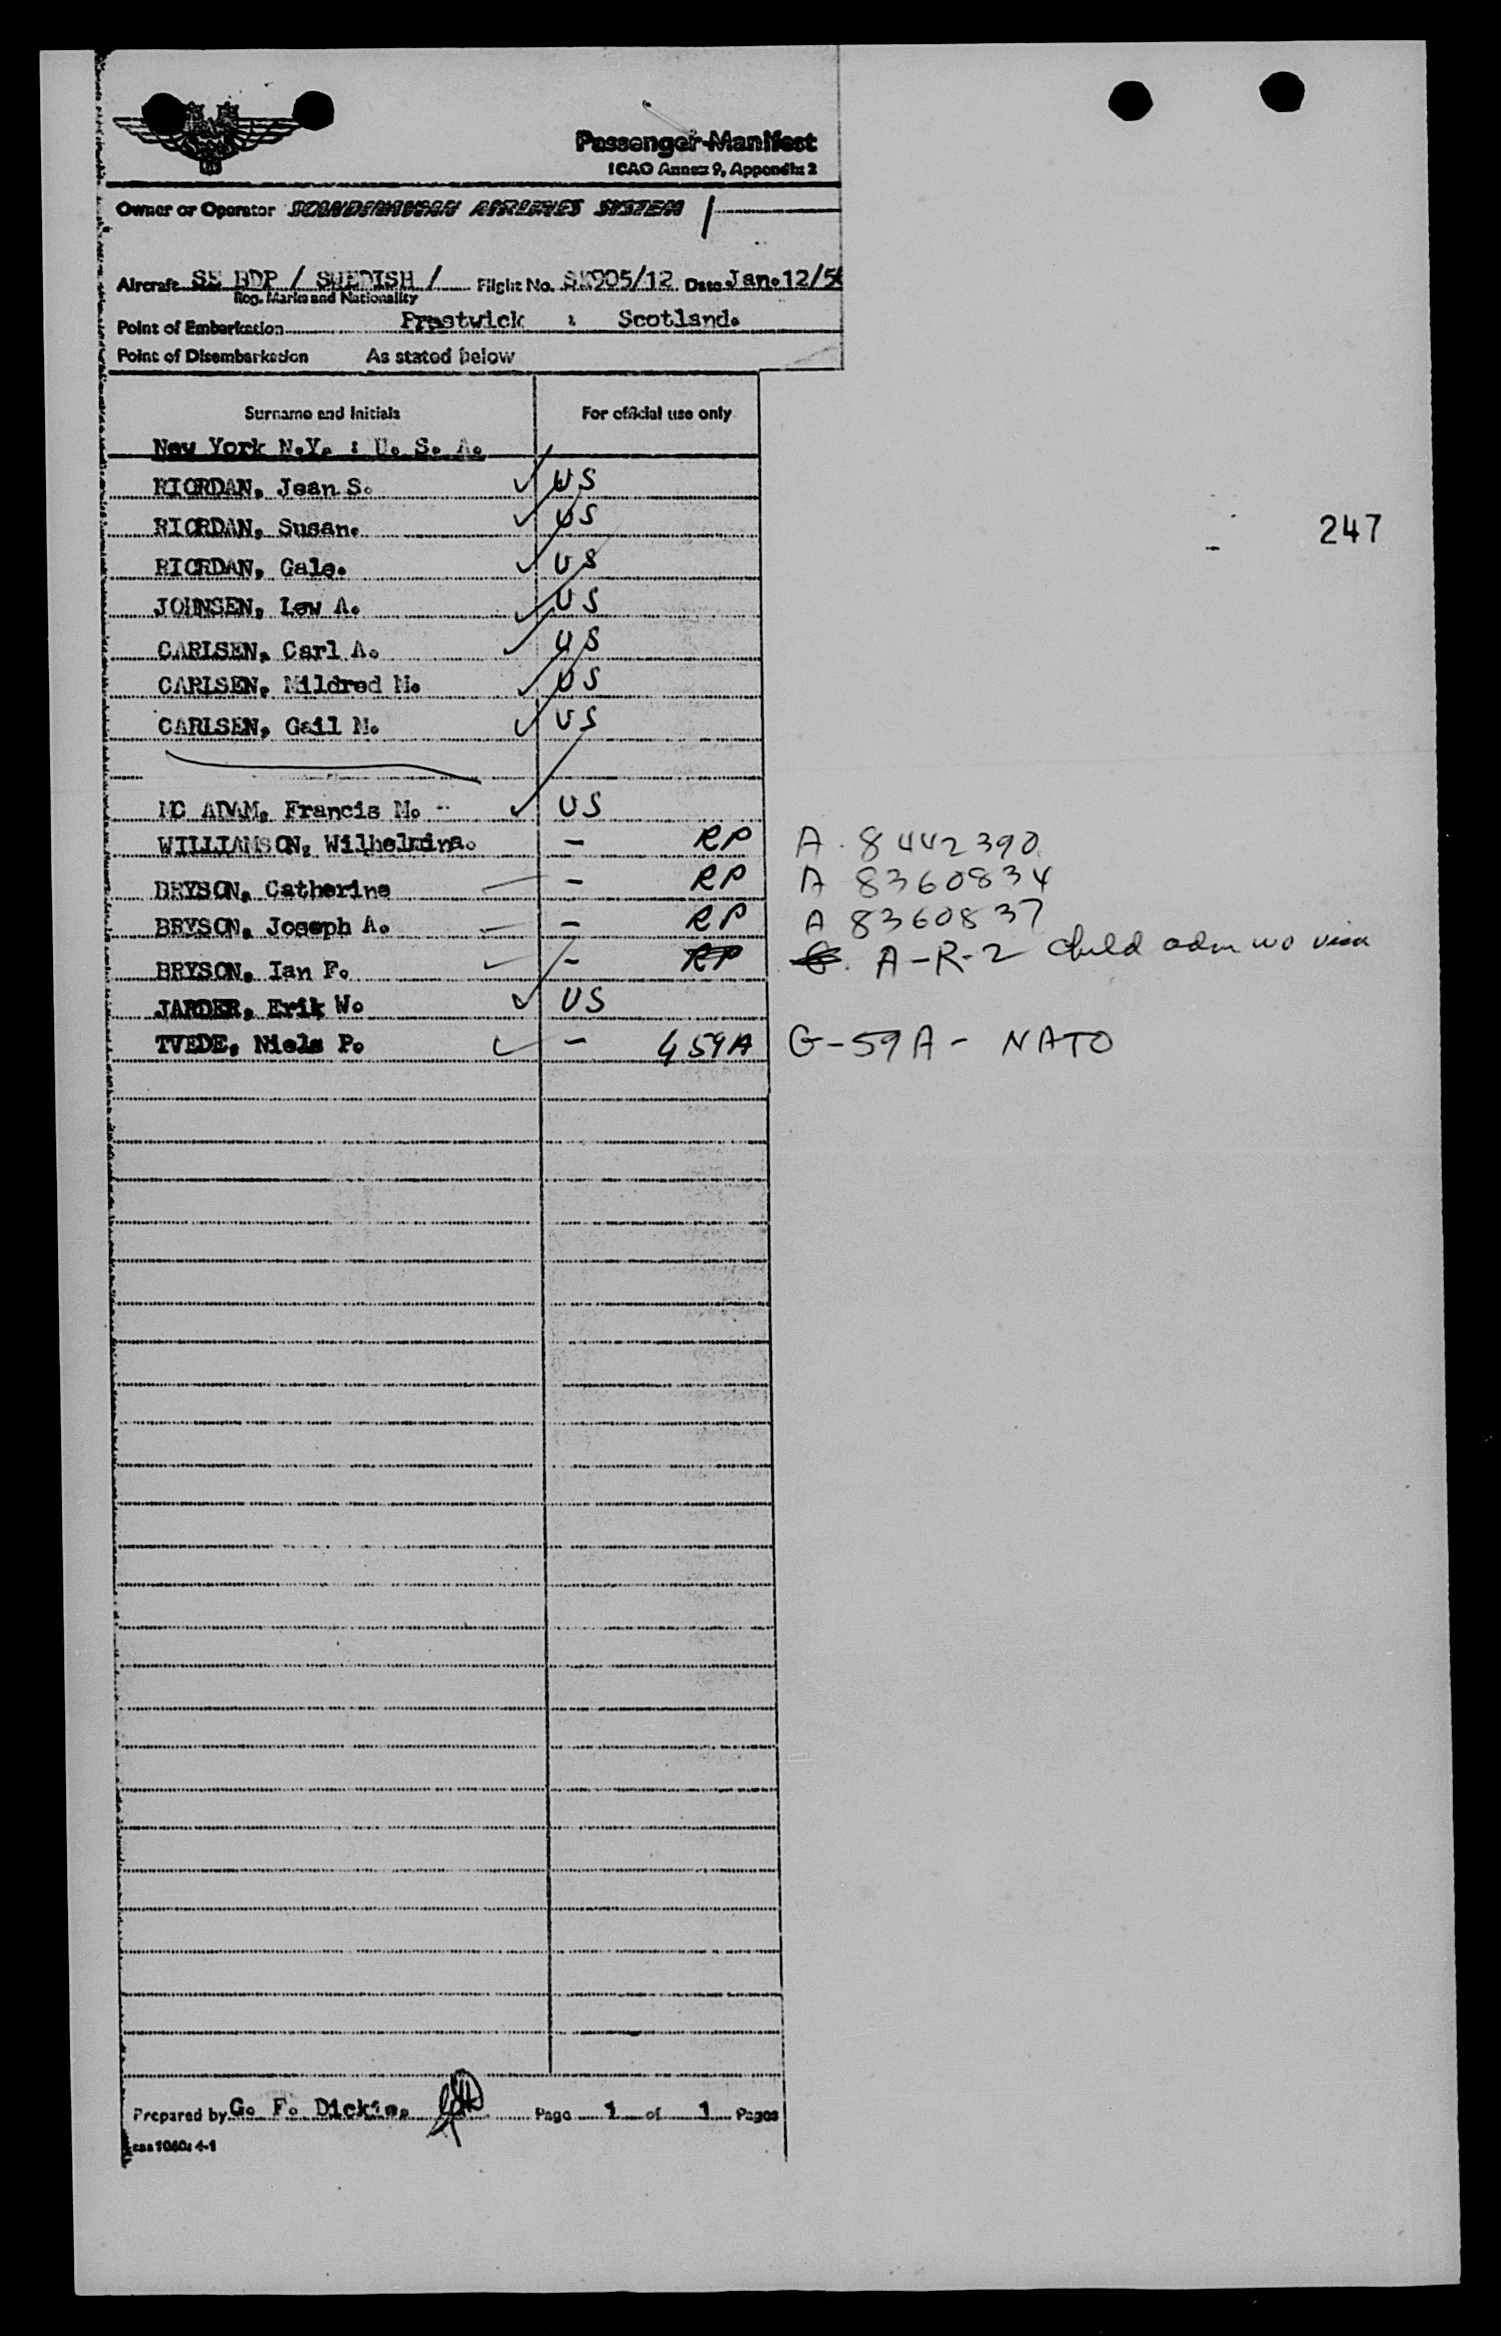 Passenger-Manifest
ICAO Annex 9, Appendix 2
Owner or Operator SCANDINAVIAN AIRLINES SYSTEM
Aircraft SE BDP / SWEDISH / Flight No. SK905/12 Date Jan. 12/5
Reg. Marks and Nationality
Point of Embarkation Prestwick : Scotland.
Point of Disembarkation As stated below
Surname and Initials For official use only
New York N.Y. : U. S. A.
RIORDAN, Jean S. ✓ US
RIORDAN, Susan. ✓ US
RIORDAN, Gale. ✓ US
247
JOHNSEN, Lew A. ✓ US
CARLSEN, Carl A. ✓ US
CARLSEN, Mildred M. ✓ US
CARLSEN, Gail M. ✓ US
MC ADAM, Francis M. ✓ US
WILLIAMSON, Wilhelmina. - RP A 8442390
BRYSON, Catherine - RP A 8360834
BRYSON, Joseph A. - RP A 8360837
BRYSON, Ian F. ✓ - RP G. A-R-2 Child adm wo visa
JARDER, Erik W. ✓ US
TVEDE, Niels P. ✓ - G 59A G-59A - NATO
Prepared by G. F. Dickie, Page 1 of 1 Pages